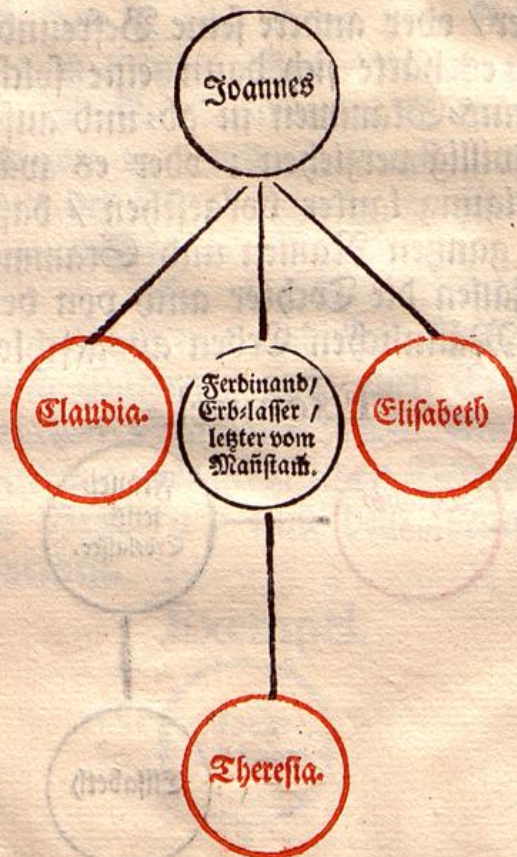 Joannes
Claudia.
Ferdinand/
Erb-lasser /
letzter vom
Mañstam̃.
Elisabeth
Theresia.